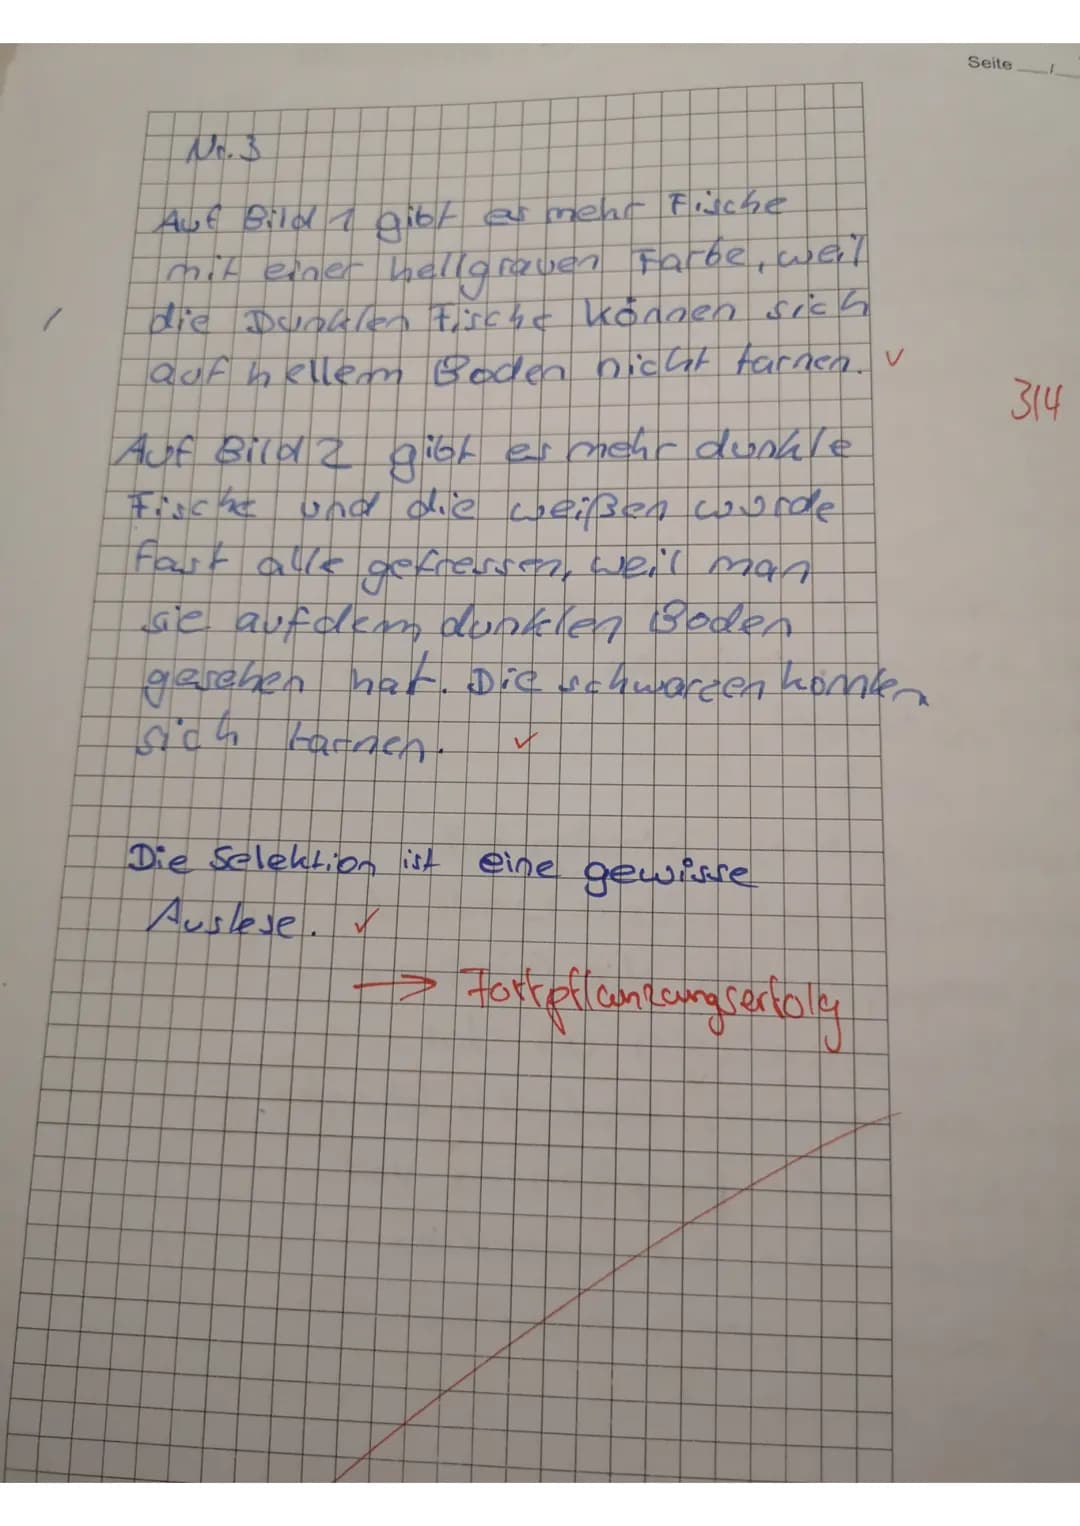 Seite __/__
Nr. 3
Auf Bild 1 gibt es mehr Fische
mit einer hellgrauen Farbe, weil
die Dunklen Fische können sich
auf hellem Boden nicht tarnen. ✓
3/4
Auf Bild 2 gibt es mehr dunkle
Fische und die weißen wurde
fast alle gefressen, weil man
sie auf dem dunklen Boden
gesehen hat. Die schwarzen konnten
sich tarnen. ✓
Die Selektion ist eine gewisse
Auslese. ✓
→ Fortpflanzungserfolg